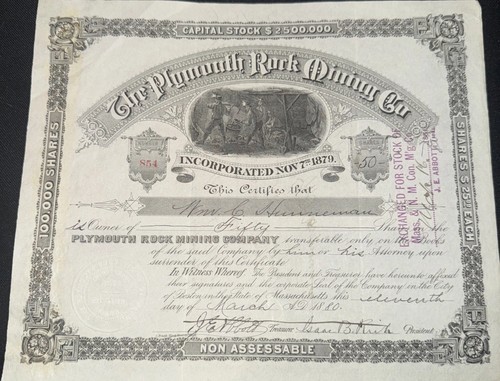 CAPITAL STOCK $2500,000.
The Plymouth Rock Mining Co
INCORPORATED NOV 7TH 1879.
854
-50-
100,000 SHARES
SHARES $25 EACH
This Certifies that
Wm C. Hunneman
is Owner of Fifty Shares
PLYMOUTH ROCK MINING COMPANY transferable only on the Books
of the said Company by him or his Attorney upon
surrender of this Certificate
In Witness Whereof The President and Treasurer have hereunto affixed
their signatures and the corporate Seal of the Company in the City
of Boston and State of Massachusetts this eleventh
day of March A.D. 1880.
Treasurer
President
NON ASSESSABLE
EXCHANGED FOR STOCK OF
Mass. & N. M. Con. M'g
J. E. ABBOTT